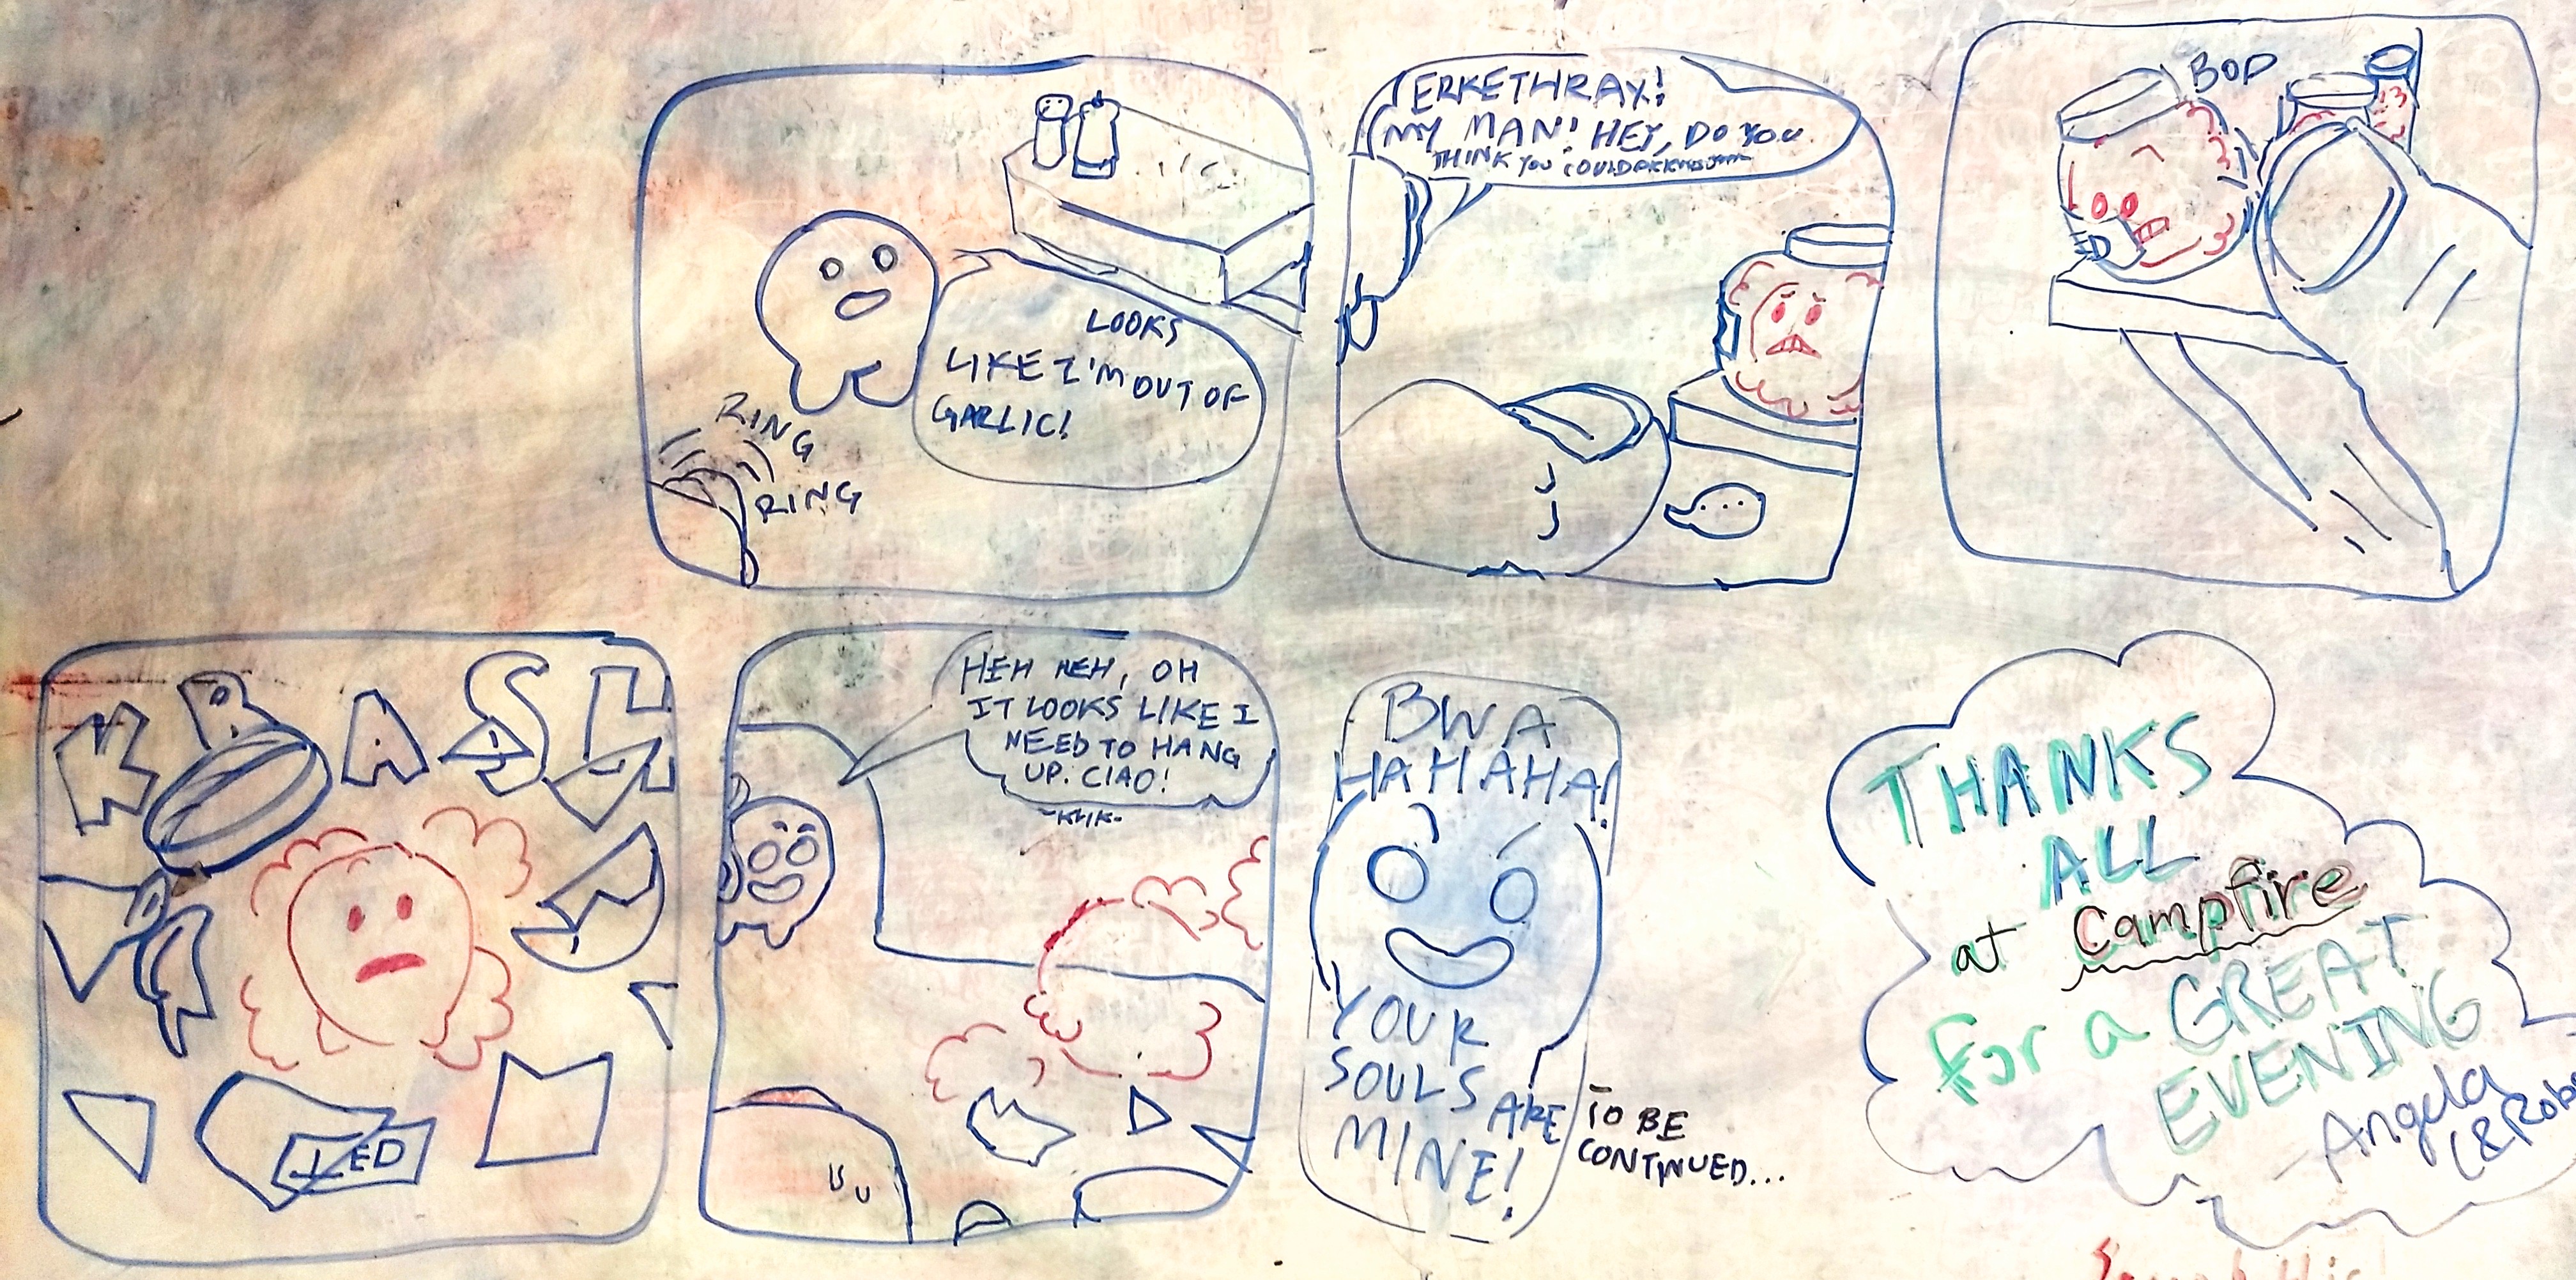 LOOKS
LIKE I'M OUT OF
GARLIC!
RING
RING
ERKETHRAY!
MY MAN! HEY, DO YOU
THINK YOU COULD
...
BOP
ED
KRASH
ED
HEH HEH, OH
IT LOOKS LIKE I
NEED TO HANG
UP. CIAO!
-KLIK-
BWA
HAHAHA!
YOUR
SOULS ARE
MINE!
TO BE
CONTINUED...
THANKS
ALL
at Campfire
for a GREAT
EVENING
-Angela
(& Rob